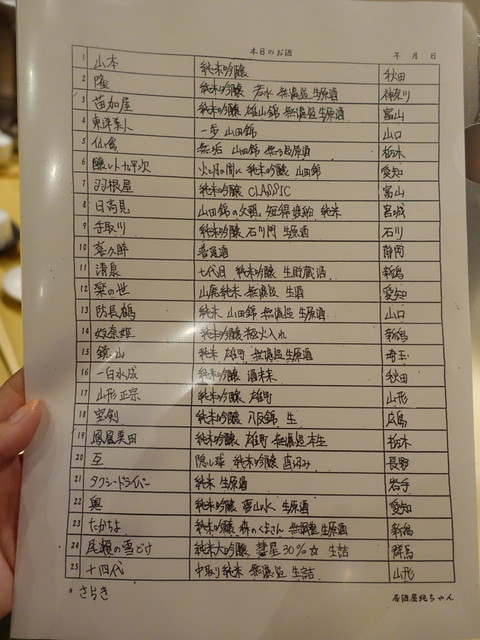 本日のお酒 年 月 日
1 山本 純米吟醸 秋田
2 隆 純米吟醸 若水 無濾過 生原酒 神奈川
3 苗加屋 純米吟醸 雄山錦 無濾過 生原酒 富山
4 東洋美人 一歩 山田錦 山口
5 仙禽 無垢 山田錦 無ろ過原酒 栃木
6 醸し人九平次 火と月の間に 純米吟醸 山田錦 愛知
7 羽根屋 純米吟醸 CLASSIC 富山
8 日高見 山田錦の父親 短稈渡船 純米 宮城
9 手取川 純米吟醸 石川門 生原酒 石川
10 喜久酔 普通酒 静岡
11 清泉 七代目 純米吟醸 生貯蔵酒 新潟
12 楽の世 山廃純米 無濾過 生酒 愛知
13 防長鶴 純米 山田錦 無濾過 生原酒 山口
14 奴奈姫 純米吟醸 瓶火入れ 新潟
15 鏡山 純米 雄町 無濾過 生原酒 埼玉
16 一白水成 純米吟醸 酒未来 秋田
17 山形正宗 純米吟醸 雄町 山形
18 宝剣 純米吟醸 八反錦 生 広島
19 鳳凰美田 純米吟醸 雄町 無濾過本生 栃木
20 亙 隠し球 純米吟醸 直汲み 長野
21 タクシードライバー 純米 生原酒 岩手
22 奥 純米吟醸 夢山水 生原酒 愛知
23 たかちよ 純米吟醸 森のくまさん 無調整 生原酒 新潟
24 尾瀬の雪どけ 純米大吟醸 彗星30%☆ 生詰 群馬
25 十四代 中取り純米 無濾過 生詰 山形
居酒屋純ちゃん